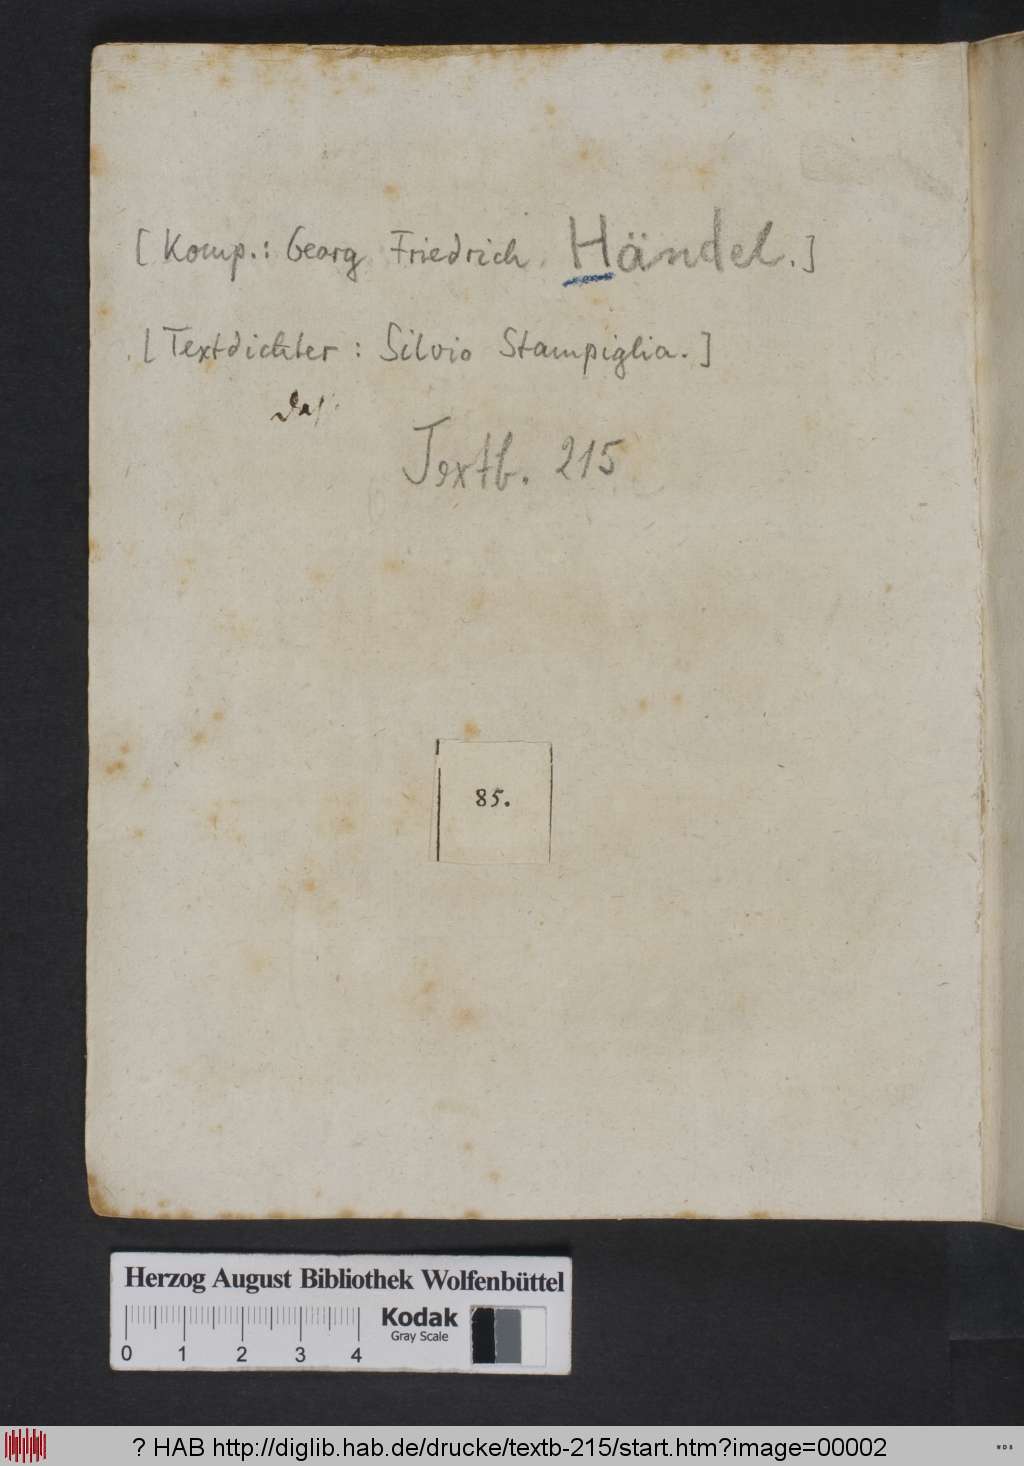 [Komp.: Georg Friedrich Händel.]
[Textdichter: Silvio Stampiglia.]
Textb. 215
85.
Herzog August Bibliothek Wolfenbüttel
Kodak
Gray Scale
0 1 2 3 4
? HAB http://diglib.hab.de/drucke/textb-215/start.htm?image=00002